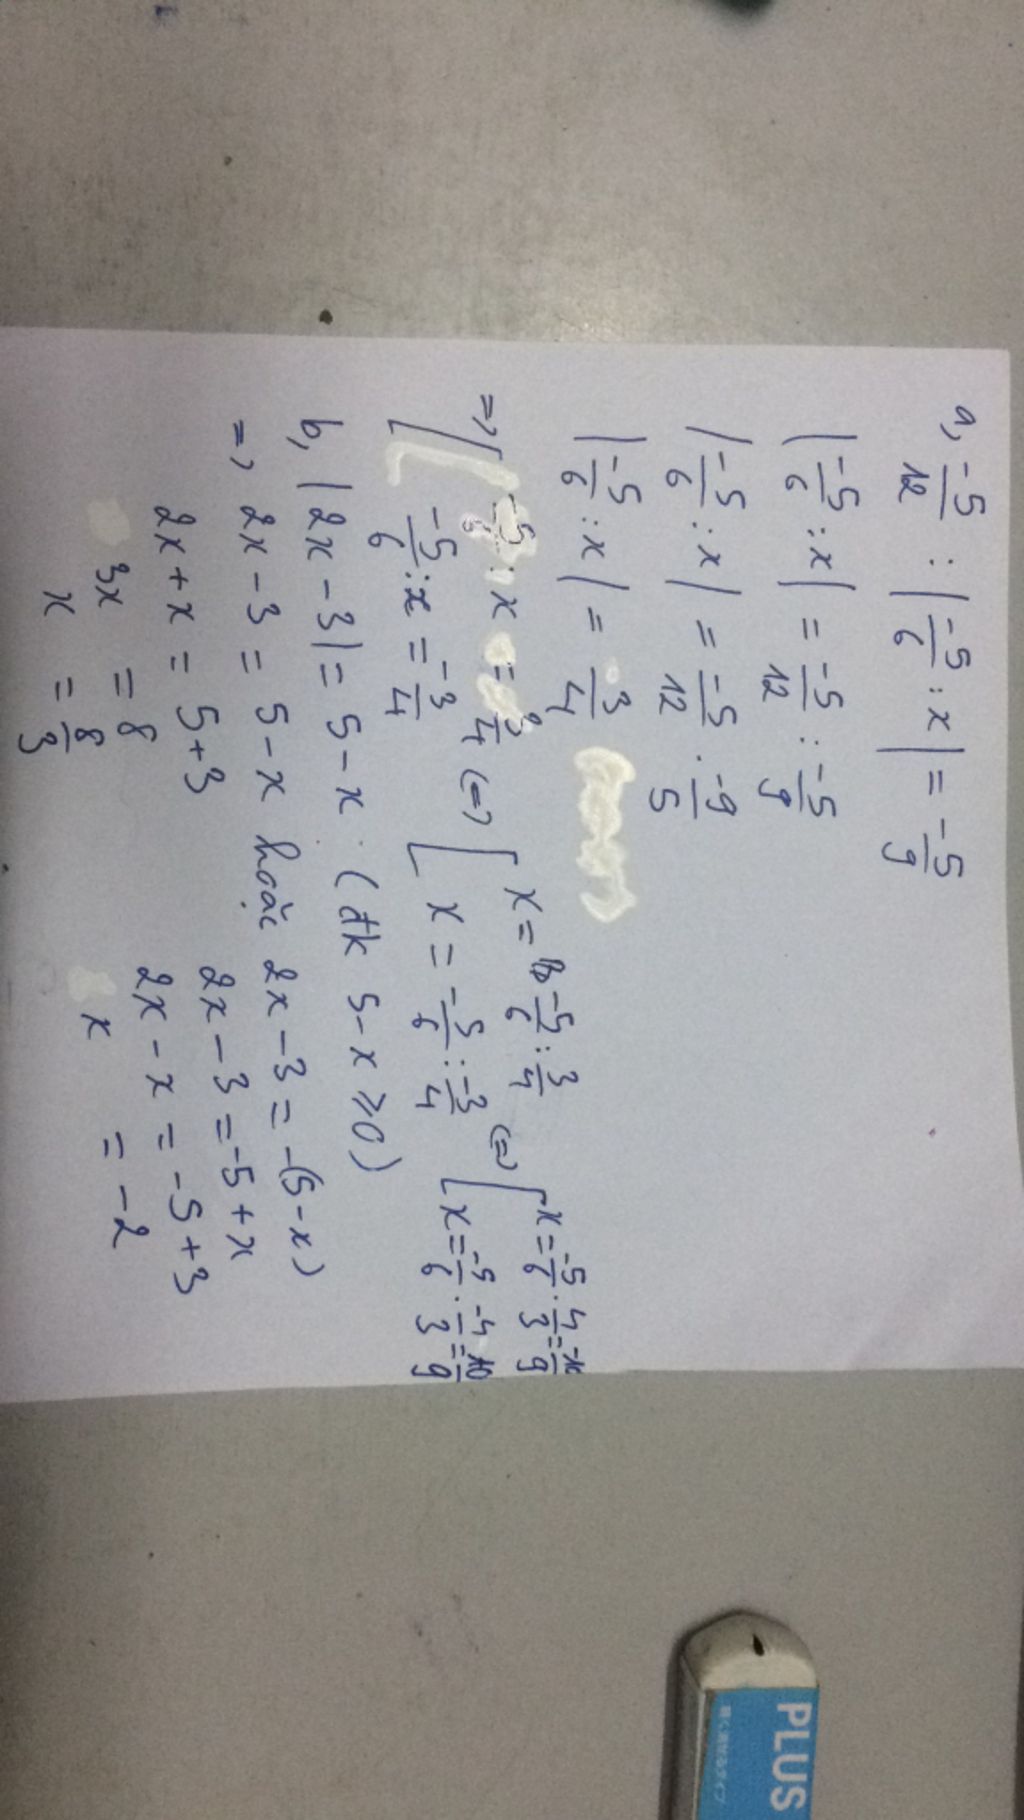 a, -5/12 : |-5/6 : x| = -5/9
|-5/6 : x| = -5/12 : -5/9
|-5/6 : x| = -5/12 . -9/5
|-5/6 : x| = 3/4
=> [ -5/6 : x = 3/4 (=) [ x = -5/6 : 3/4 (=) [ x = -5/6 . 4/3 = -10/9
-5/6 : x = -3/4 x = -5/6 : -3/4 x = -5/6 . -4/3 = 10/9
b, |2x - 3| = 5 - x (đk 5 - x ≥ 0)
=> 2x - 3 = 5 - x hoặc 2x - 3 = -(5 - x)
2x + x = 5 + 3 2x - 3 = -5 + x
3x = 8 2x - x = -5 + 3
x = 8/3 x = -2
PLUS